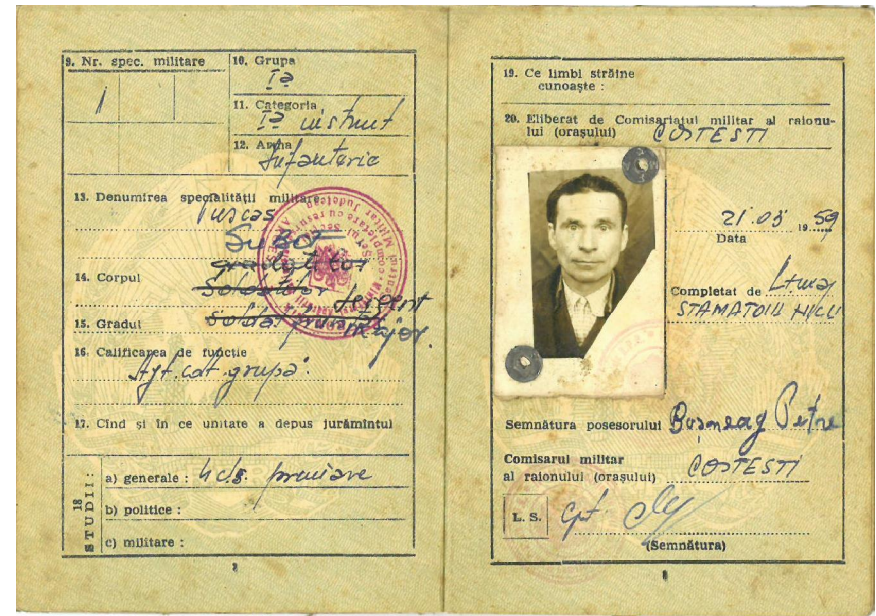 9. Nr. spec. militare
1
10. Grupa
I a
11. Categoria
I a instruit
12. Arma
Infanterie
13. Denumirea specialităţii militare
Puscas
14. Corpul
Subof
gradatilor
Soldatilor
15. Gradul
Sergent
Soldat fruntas
major.
16. Calificarea de funcţie
Ajt. cdt. grupă.
17. Cînd şi în ce unitate a depus jurămîntul
18 STUDII:
a) generale : 4 cls. primare
b) politice :
c) militare :
19. Ce limbi străine
cunoaşte :
20. Eliberat de Comisariatul militar al raionu-
lui (oraşului) COSTESTI
21 03 1959
Data
Completat de Lt. maj
STAMATOIU
Semnătura posesorului Busneag Petre
Comisarul militar
al raionului (oraşului) COSTESTI
L. S. Cpt.
(Semnătura)